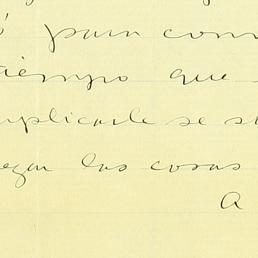 para com
tiempo que
mplicarle se s
egan las cosas
A